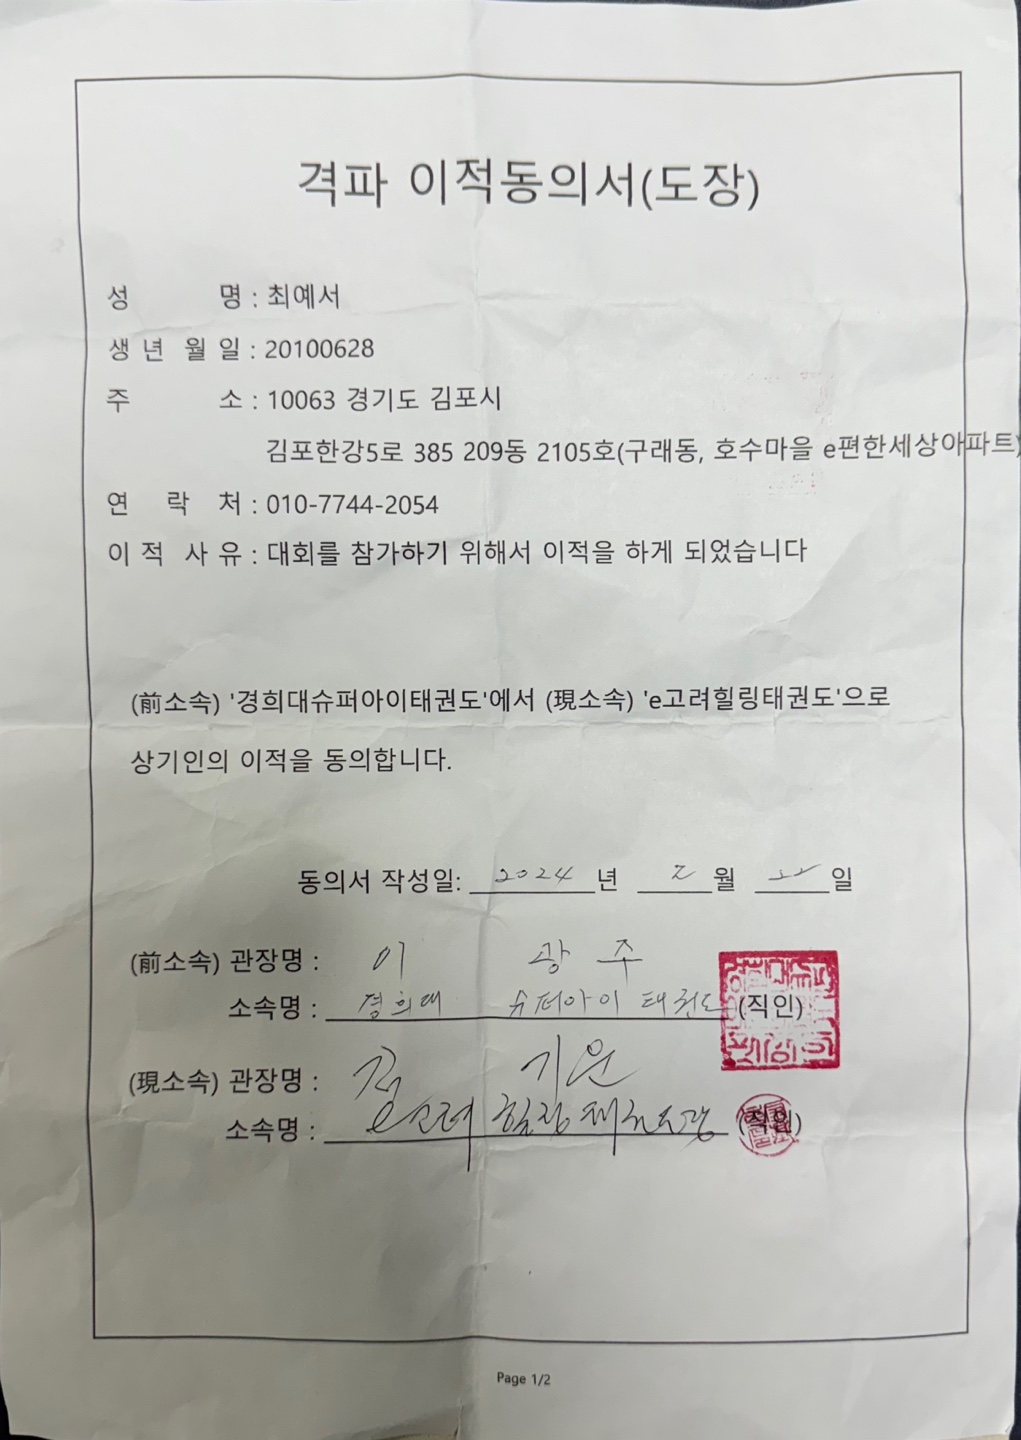 격파 이적동의서(도장)
성 명 : 최예서
생 년 월 일 : 20100628
주 소 : 10063 경기도 김포시
김포한강5로 385 209동 2105호(구래동, 호수마을 e편한세상아파트)
연 락 처 : 010-7744-2054
이 적 사 유 : 대회를 참가하기 위해서 이적을 하게 되었습니다
(前소속) '경희대슈퍼아이태권도'에서 (現소속) 'e고려힐링태권도'으로
상기인의 이적을 동의합니다.
동의서 작성일: 2024 년 2 월 일
(前소속) 관장명 : 이 광 주
소속명 : 경희대 슈퍼아이 태권도 (직인)
(現소속) 관장명 : 김 기원
소속명 : (직인)
Page 1/2